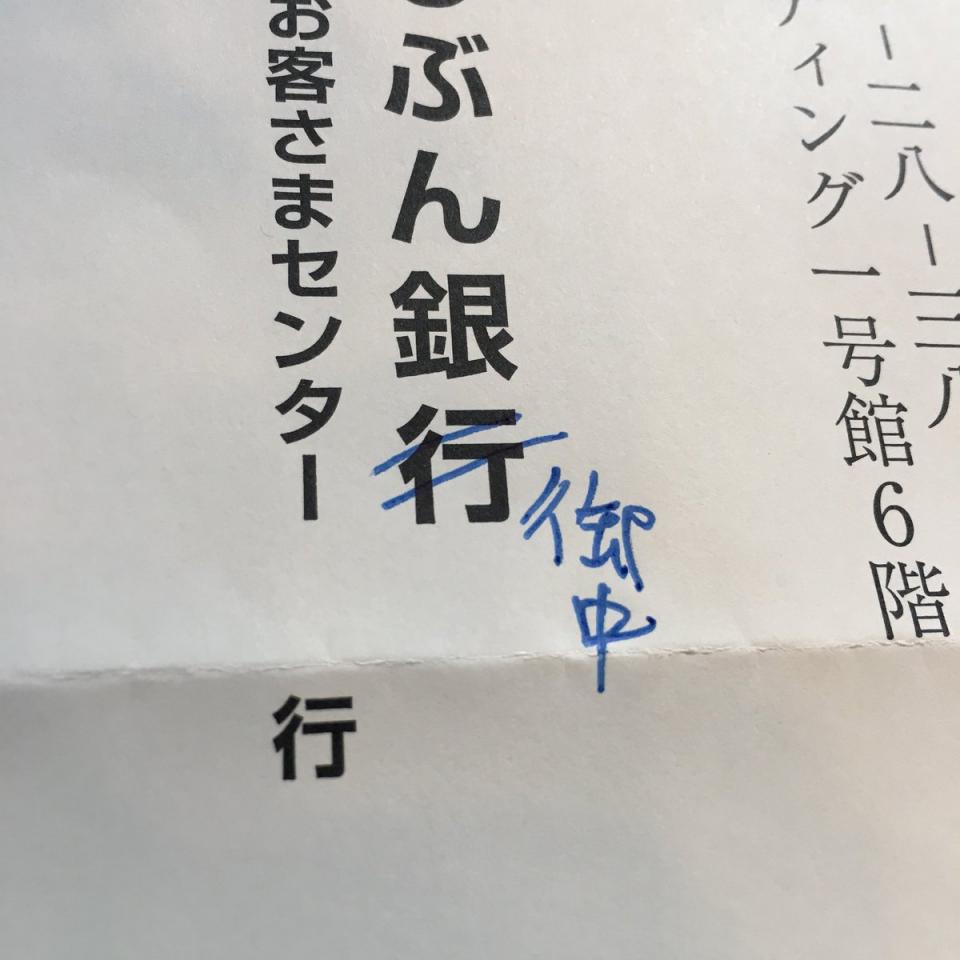 －二八－二八
ィング一号館6階
ぶん銀行
御中
お客さまセンター 行